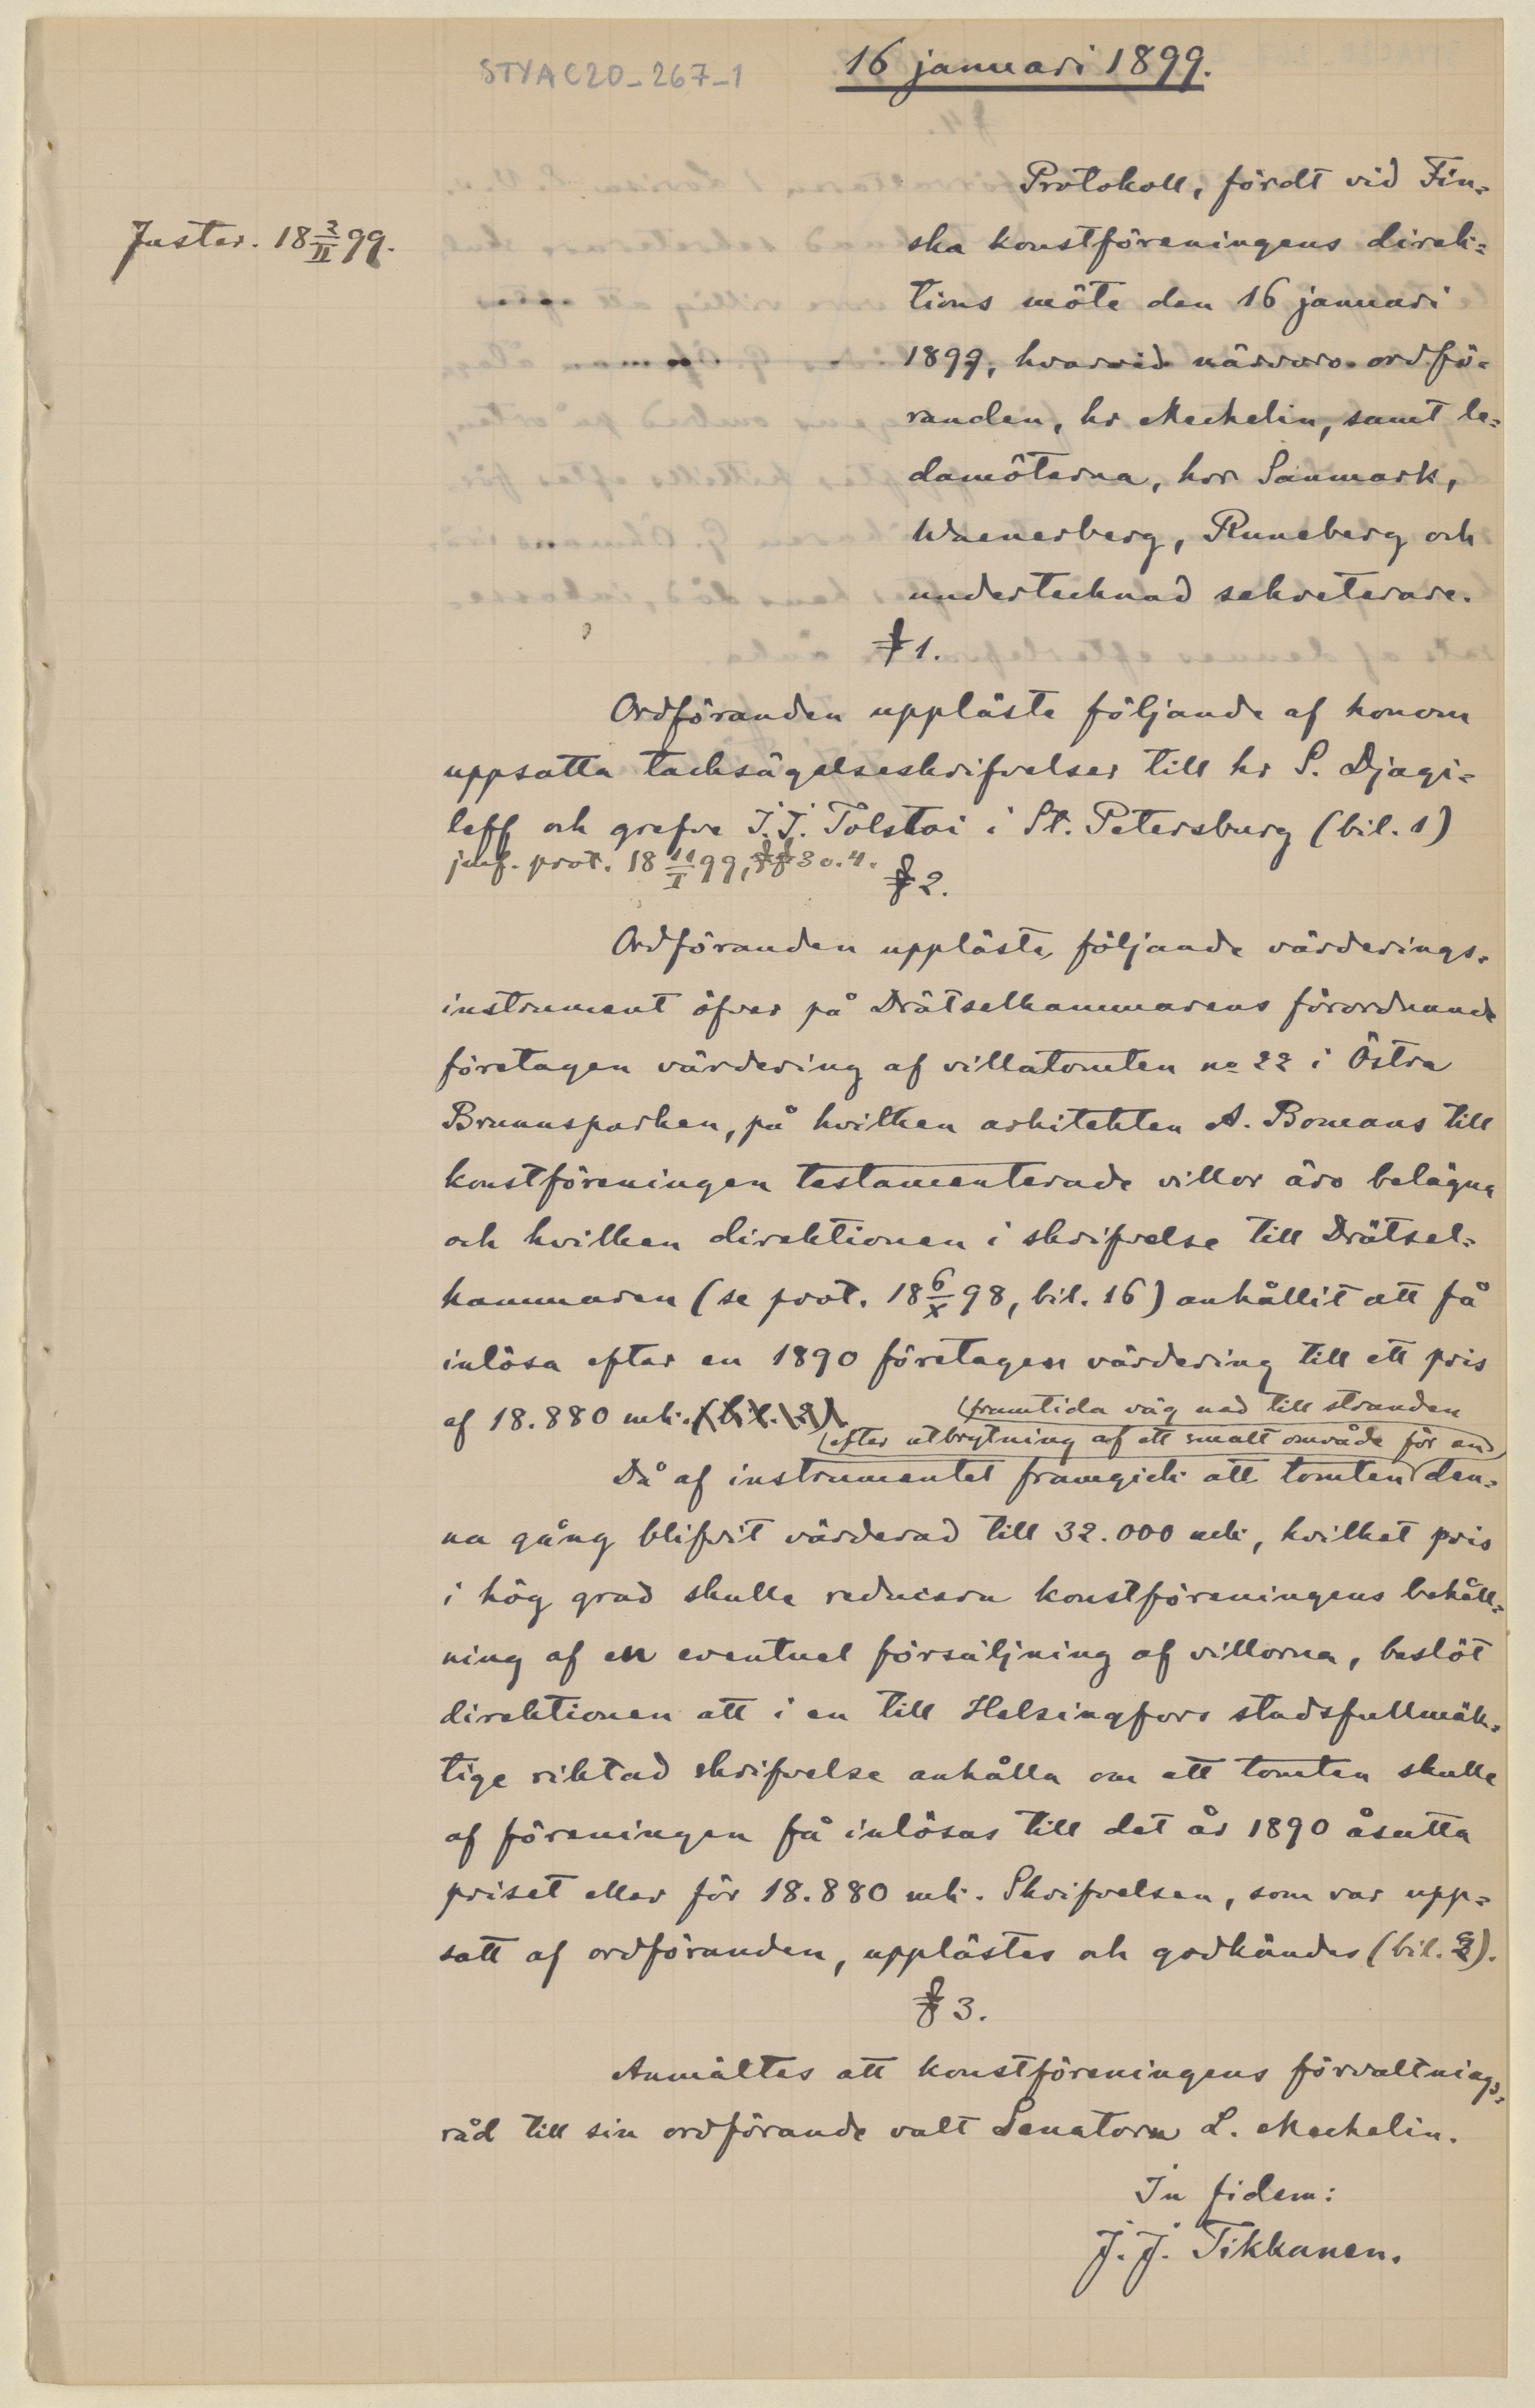 STYA C20_267_1
16 januari 1899.
Juster. 18 2/II 99.
Protokoll, fördt vid Fin=
ska konstföreningens direk=
tions möte den 16 januari
1899, hvarvid närvoro ordfö=
randen, hr Mechelin, samt le=
damöterna, hrr Sanmark,
Waenerberg, Runeberg och
undertecknad sekreterare.
§ 1.
Ordföranden uppläste följande af honom
uppsatta tacksägelseskrifvelser till hr S. Djagi=
leff och grefve J. J. Tolstoi i St. Petersburg (bil. 1)
jmf. prot. 18 11/I 99, §§ 3 o. 4.
§ 2.
Ordföranden uppläste följande värderings=
instrument öfver på Drätselkammarens förordnande
företagen värdering af villatomten no 22 i Östra
Brunnsparken, på hvilken arkitekten A. Bomans till
konstföreningen testamenterade villor äro belägna
och hvilken direktionen i skrifvelse till Drätsel=
kammaren (se prot. 18 6/X 98, bil. 16) anhållit att få
inlösa efter en 1890 företagen värdering till ett pris
af 18.880 mk. (bil. 2).
framtida väg ned till stranden
efter utbrytning af ett smalt område för en
Då af instrumentet framgick att tomten den=
na gång blifvit värderad till 32.000 mk, hvilket pris
i hög grad skulle reducera konstföreningens behåll=
ning af en eventuel försäljning af villorna, beslöt
direktionen att i en till Helsingfors stadsfullmäk=
tige riktad skrifvelse anhålla om att tomten skulle
af föreningen få inlösas till det år 1890 åsatta
priset eller för 18.880 mk. Skrifvelsen, som var upp=
satt af ordföranden, upplästes och godkändes (bil. 2).
§ 3.
Anmältes att konstföreningens förvaltnings=
råd till sin ordförande valt Senatorn L. Mechelin.
In fidem:
J. J. Tikkanen.